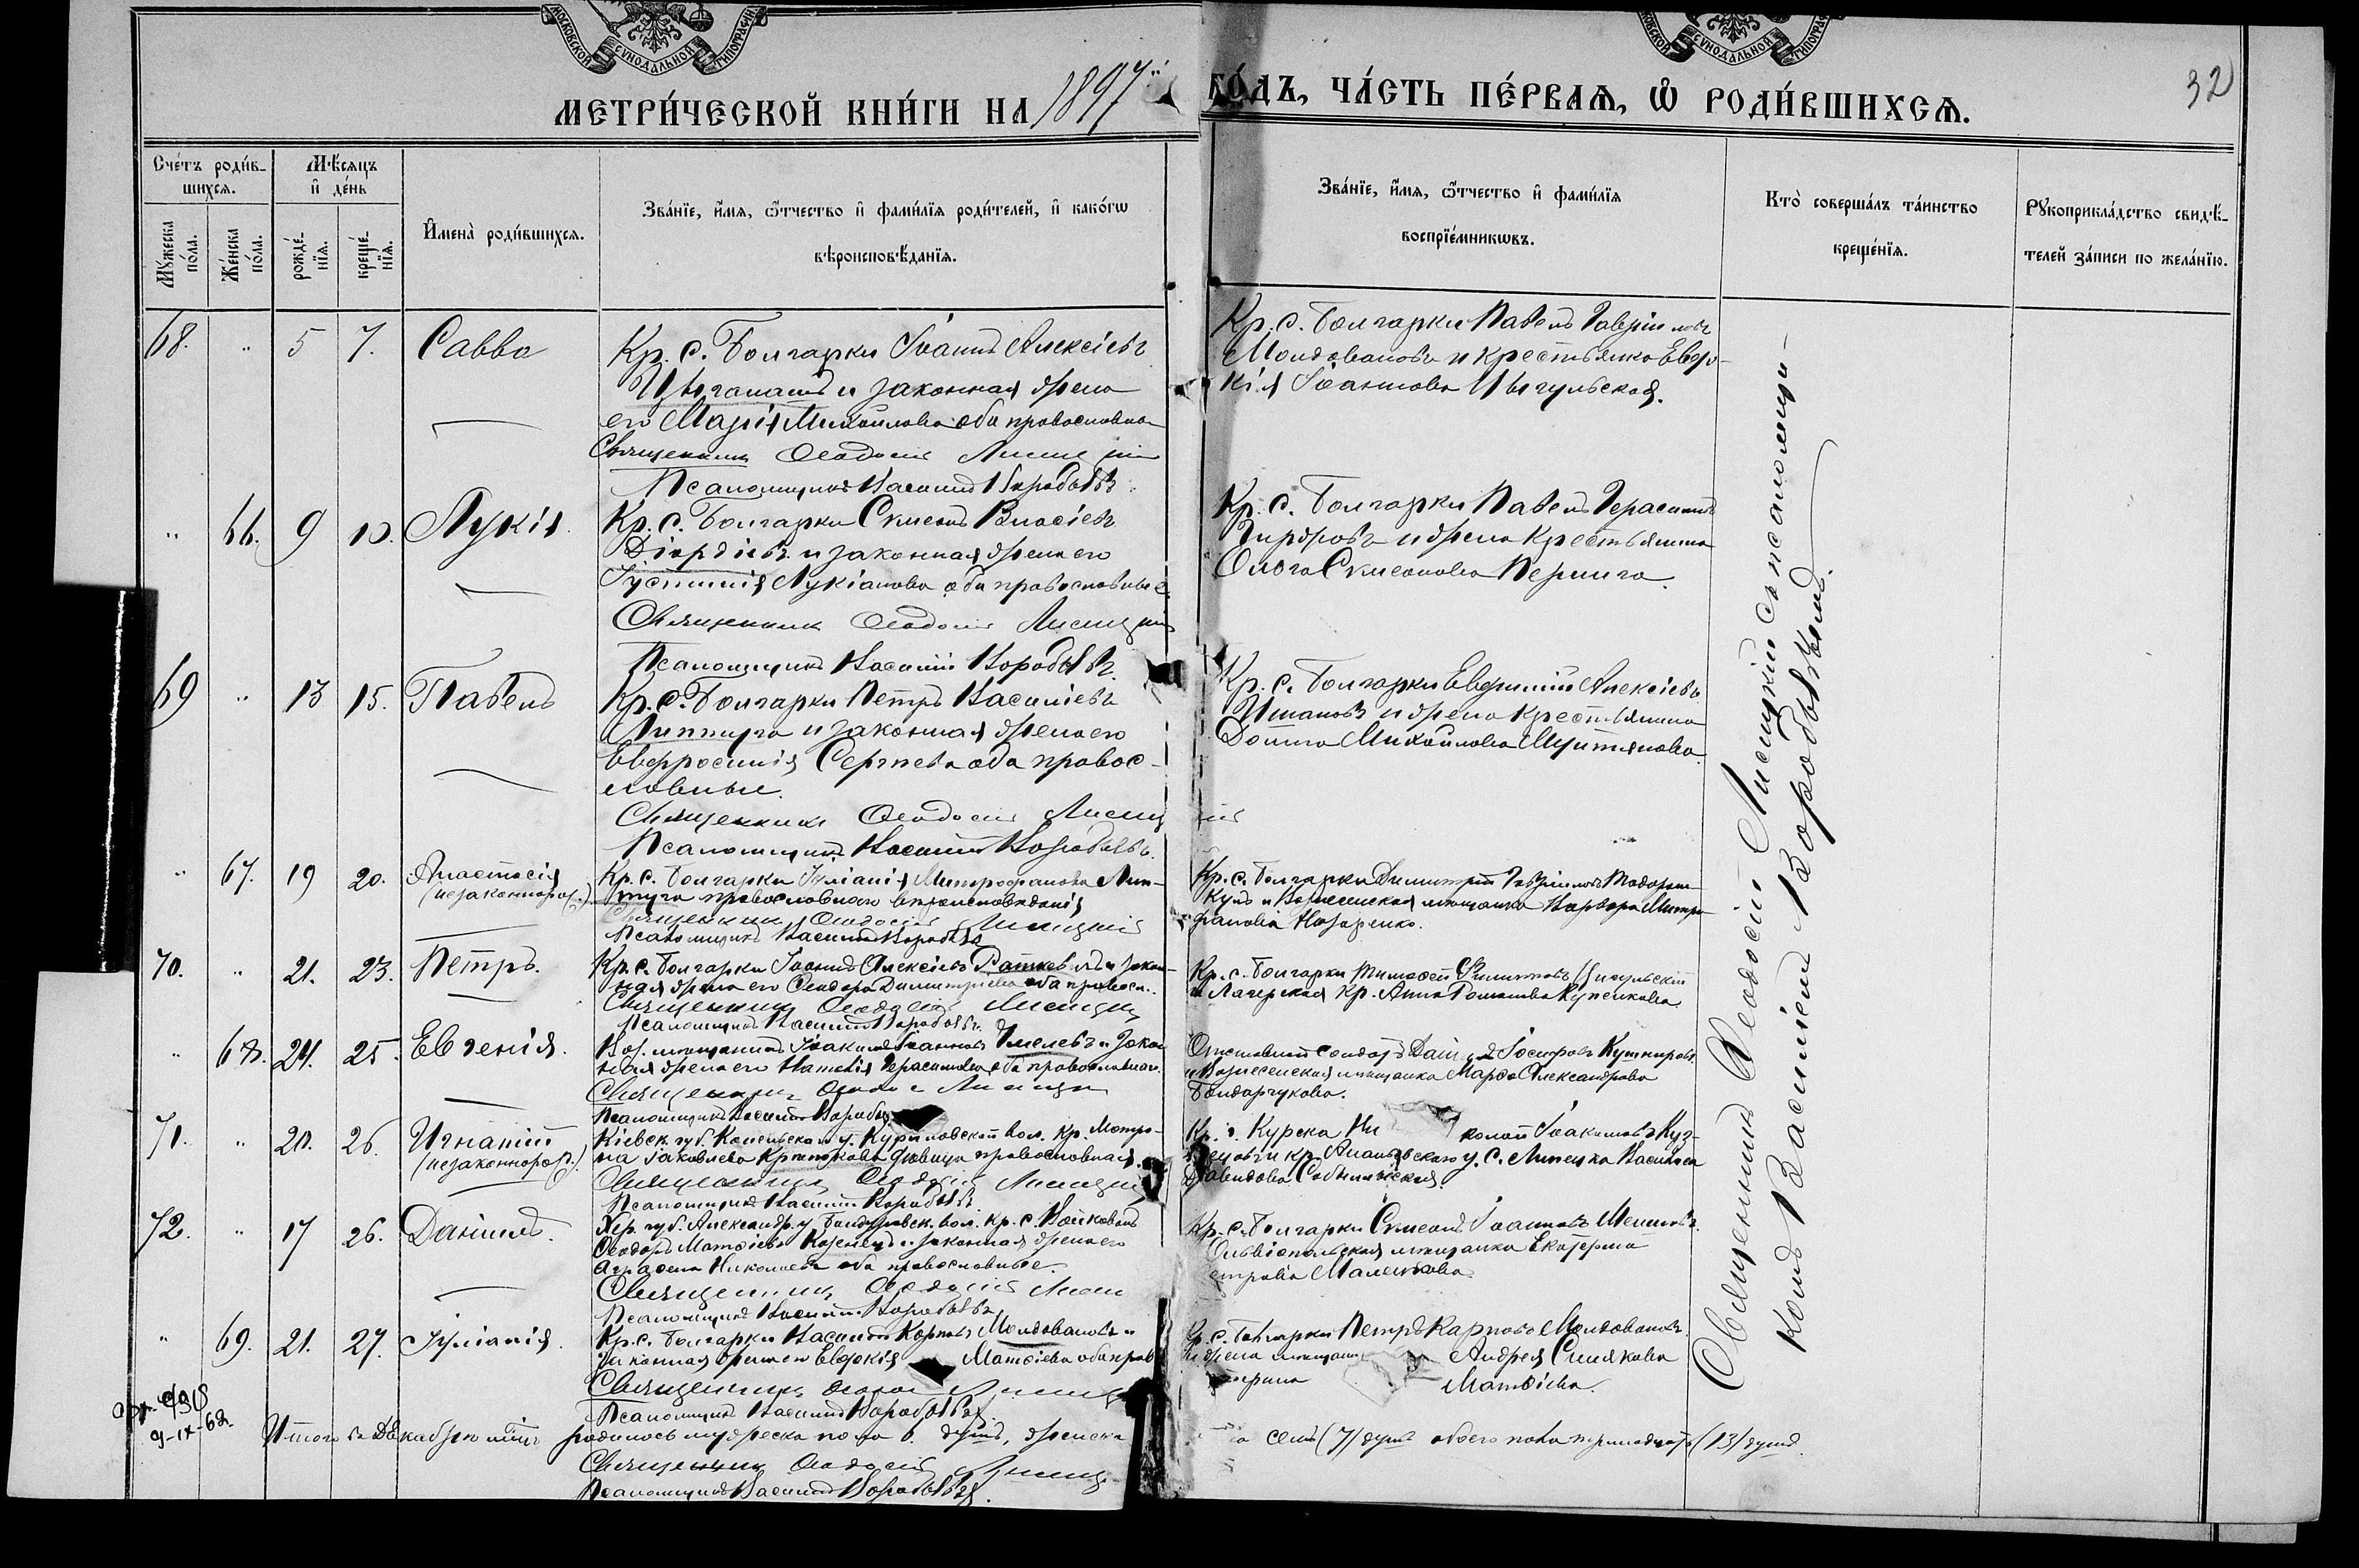 МОСКОВСКОЙ СѴНОДАЛЬНОЙ ТИПОГРАФІИ
МОСКОВСКОЙ СѴНОДАЛЬНОЙ
МЕТРИ́ЧЕСКОЙ КНИ́ГИ НА 1897й ГО́ДЪ, ЧА́СТЬ ПЕ́РВАѦ, Ѽ РОДИ́ВШИХСѦ.
32
Сче́тъ роди́в-
шихсѧ.
Мѣ́сяцъ
и҆ де́нь
Мꙋ́жеска по́ла.
Же́нска по́ла.
рожде́-
нїѧ.
креще́-
нїѧ.
И҆мена̀ роди́вшихсѧ.
Зва́нїе, и҆́мѧ, ѻ҆́тчество и҆ фами́лїѧ роди́телей, и҆ како́гѡ
вѣроисповѣ́данїѧ.
Зва́нїе, и҆́мѧ, ѻ҆́тчество и҆ фами́лїѧ
воспрїе́мникѡвъ.
Кто̀ соверша́лъ та́инство
креще́нїѧ.
Рꙋкоприкла́дство свидѣ́-
телей за́писи по жела́нїю.
68. " 5 7. Савва
Кр. с. Болгарки Іоаннъ Алексіевъ
Цыганашъ и законная жена
его Марія Михайлова оба православные
Священникъ Ѳеодосій Лисицкій
Псаломщикъ Василій Воробьевъ.
Кр. с. Болгарки Павелъ Гавріиловъ
Молдовановъ и крестьянка Евдо-
кія Іоаннова Цыгульская.
" 66. 9 10. Лукія.
Кр. с. Болгарки Симеонъ Власіевъ
Діордіевъ и законная жена его
Іустинія Лукіанова оба православные.
Священникъ Ѳеодосій Лисицкій
Псаломщикъ Василій Воробьевъ.
Кр. с. Болгарки Павелъ Герасимовъ
и жена крестьянина
Ольга Симеонова
69 " 13 15. Павелъ
Кр. с. Болгарки Петръ Василіевъ
Липпуга и законная жена его
Евфросинія Сергіева оба правос-
лавные.
Священникъ Ѳеодосій Лисицкій
Псаломщикъ Василій Воробьевъ.
Кр. с. Болгарки Евфимій Алексіевъ
и жена крестьянина
Домна Михайлова Мунтянова.
" 67. 19 20. Анастасія
(незаконнорож.)
Кр. с. Болгарки Іуліанія Митрофанова Лип-
пуга православнаго вѣроисповѣданія
Священникъ Ѳеодосій Лисицкій
Псаломщикъ Василій Воробьевъ
Кр. с. Болгарки Димитрій Гавріиловъ Тодораш-
кулъ и Вознесенская мѣщанка Варвара Митро-
фанова Назаренко.
70. " 21. 23. Петръ.
Кр. с. Болгарки Іоаннъ Алексіевъ Ратковъ и закон-
ная жена его Ѳеодора Димитріева оба правосл.
Священникъ Ѳеодосій Лисицкій
Псаломщикъ Василій Воробьевъ.
Кр. с. Болгарки Тимоѳей Филипповъ Цыгульскій
и Лагерская кр. Анна Романова Купенкова
" 68. 24. 25. Евгенія.
Воз. мѣщанинъ Іоакимъ Іоанновъ и закон-
ная жена его Наталія Герасимова оба православные.
Священникъ Ѳеодосій Лисицкій
Псаломщикъ Василій Воробьевъ
Отставной солдатъ Іосифовъ Кушнировъ
и Вознесенская мѣщанка Марѳа Александрова
Бондарчукова.
71. " 20. 26. Игнатій
(незаконнорож.)
Кіевск. губ. у. Куриловской вол. кр. Матро-
на Іаковлева дѣвица православная.
Священникъ Ѳеодосій Лисицкій
Псаломщикъ Василій Воробьевъ
Кр. г. Курска Николай Іоакимовъ Куз-
нецовъ и кр. Ананьевскаго у. с. Липецка Василиса
Давидова
72. " 17 26. Даніилъ.
Хер. губ. Александр. у. вол. кр. с.
Ѳеодоръ Матѳіевъ Козенецъ и законная жена его
Агафія Николаева оба православные.
Священникъ Ѳеодосій Лисицкій
Псаломщикъ Василій Воробьевъ
Кр. с. Болгарки Симеонъ Іоанновъ
Ольвіопольская мѣщанка Екатерина
Петрова
" 69. 21. 27. Іуліанія.
Кр. с. Болгарки Василій Карповъ Молдовановъ и
законная жена его Евдокія Матѳіева оба прав.
Священникъ Ѳеодосій Лисицкій
Псаломщикъ Василій Воробьевъ
Кр. с. Болгарки Петръ Карповъ Молдовановъ
и жена мѣщанина Андрея Синякова
Матѳіева.
Священникъ Ѳеодосій Лисицкій съ псаломщи-
комъ Василіемъ Воробьевымъ.
9-IX-62
Итого въ Декабрѣ мѣс. родилось мужеска пола 6. душъ, женска
семь (7) душъ обоего пола тринадцать (13) душъ.
Священникъ Ѳеодосій Лисицкій
Псаломщикъ Василій Воробьевъ.